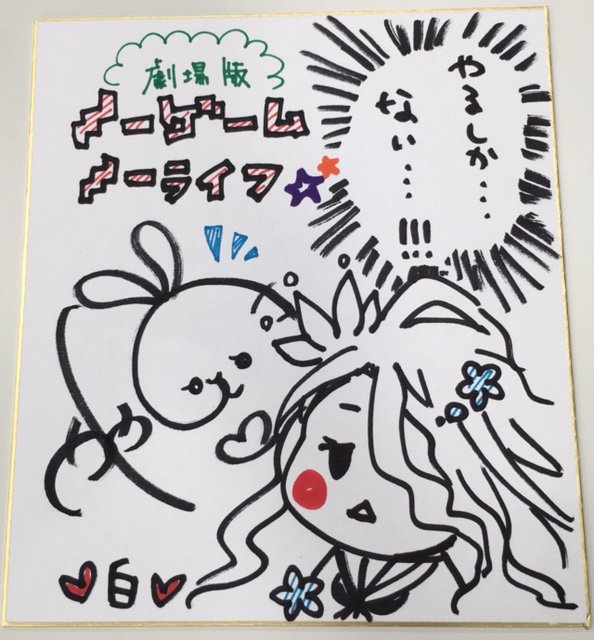 劇場版
ノーゲーム
ノーライフ
やるしか…
ない…!!!
白